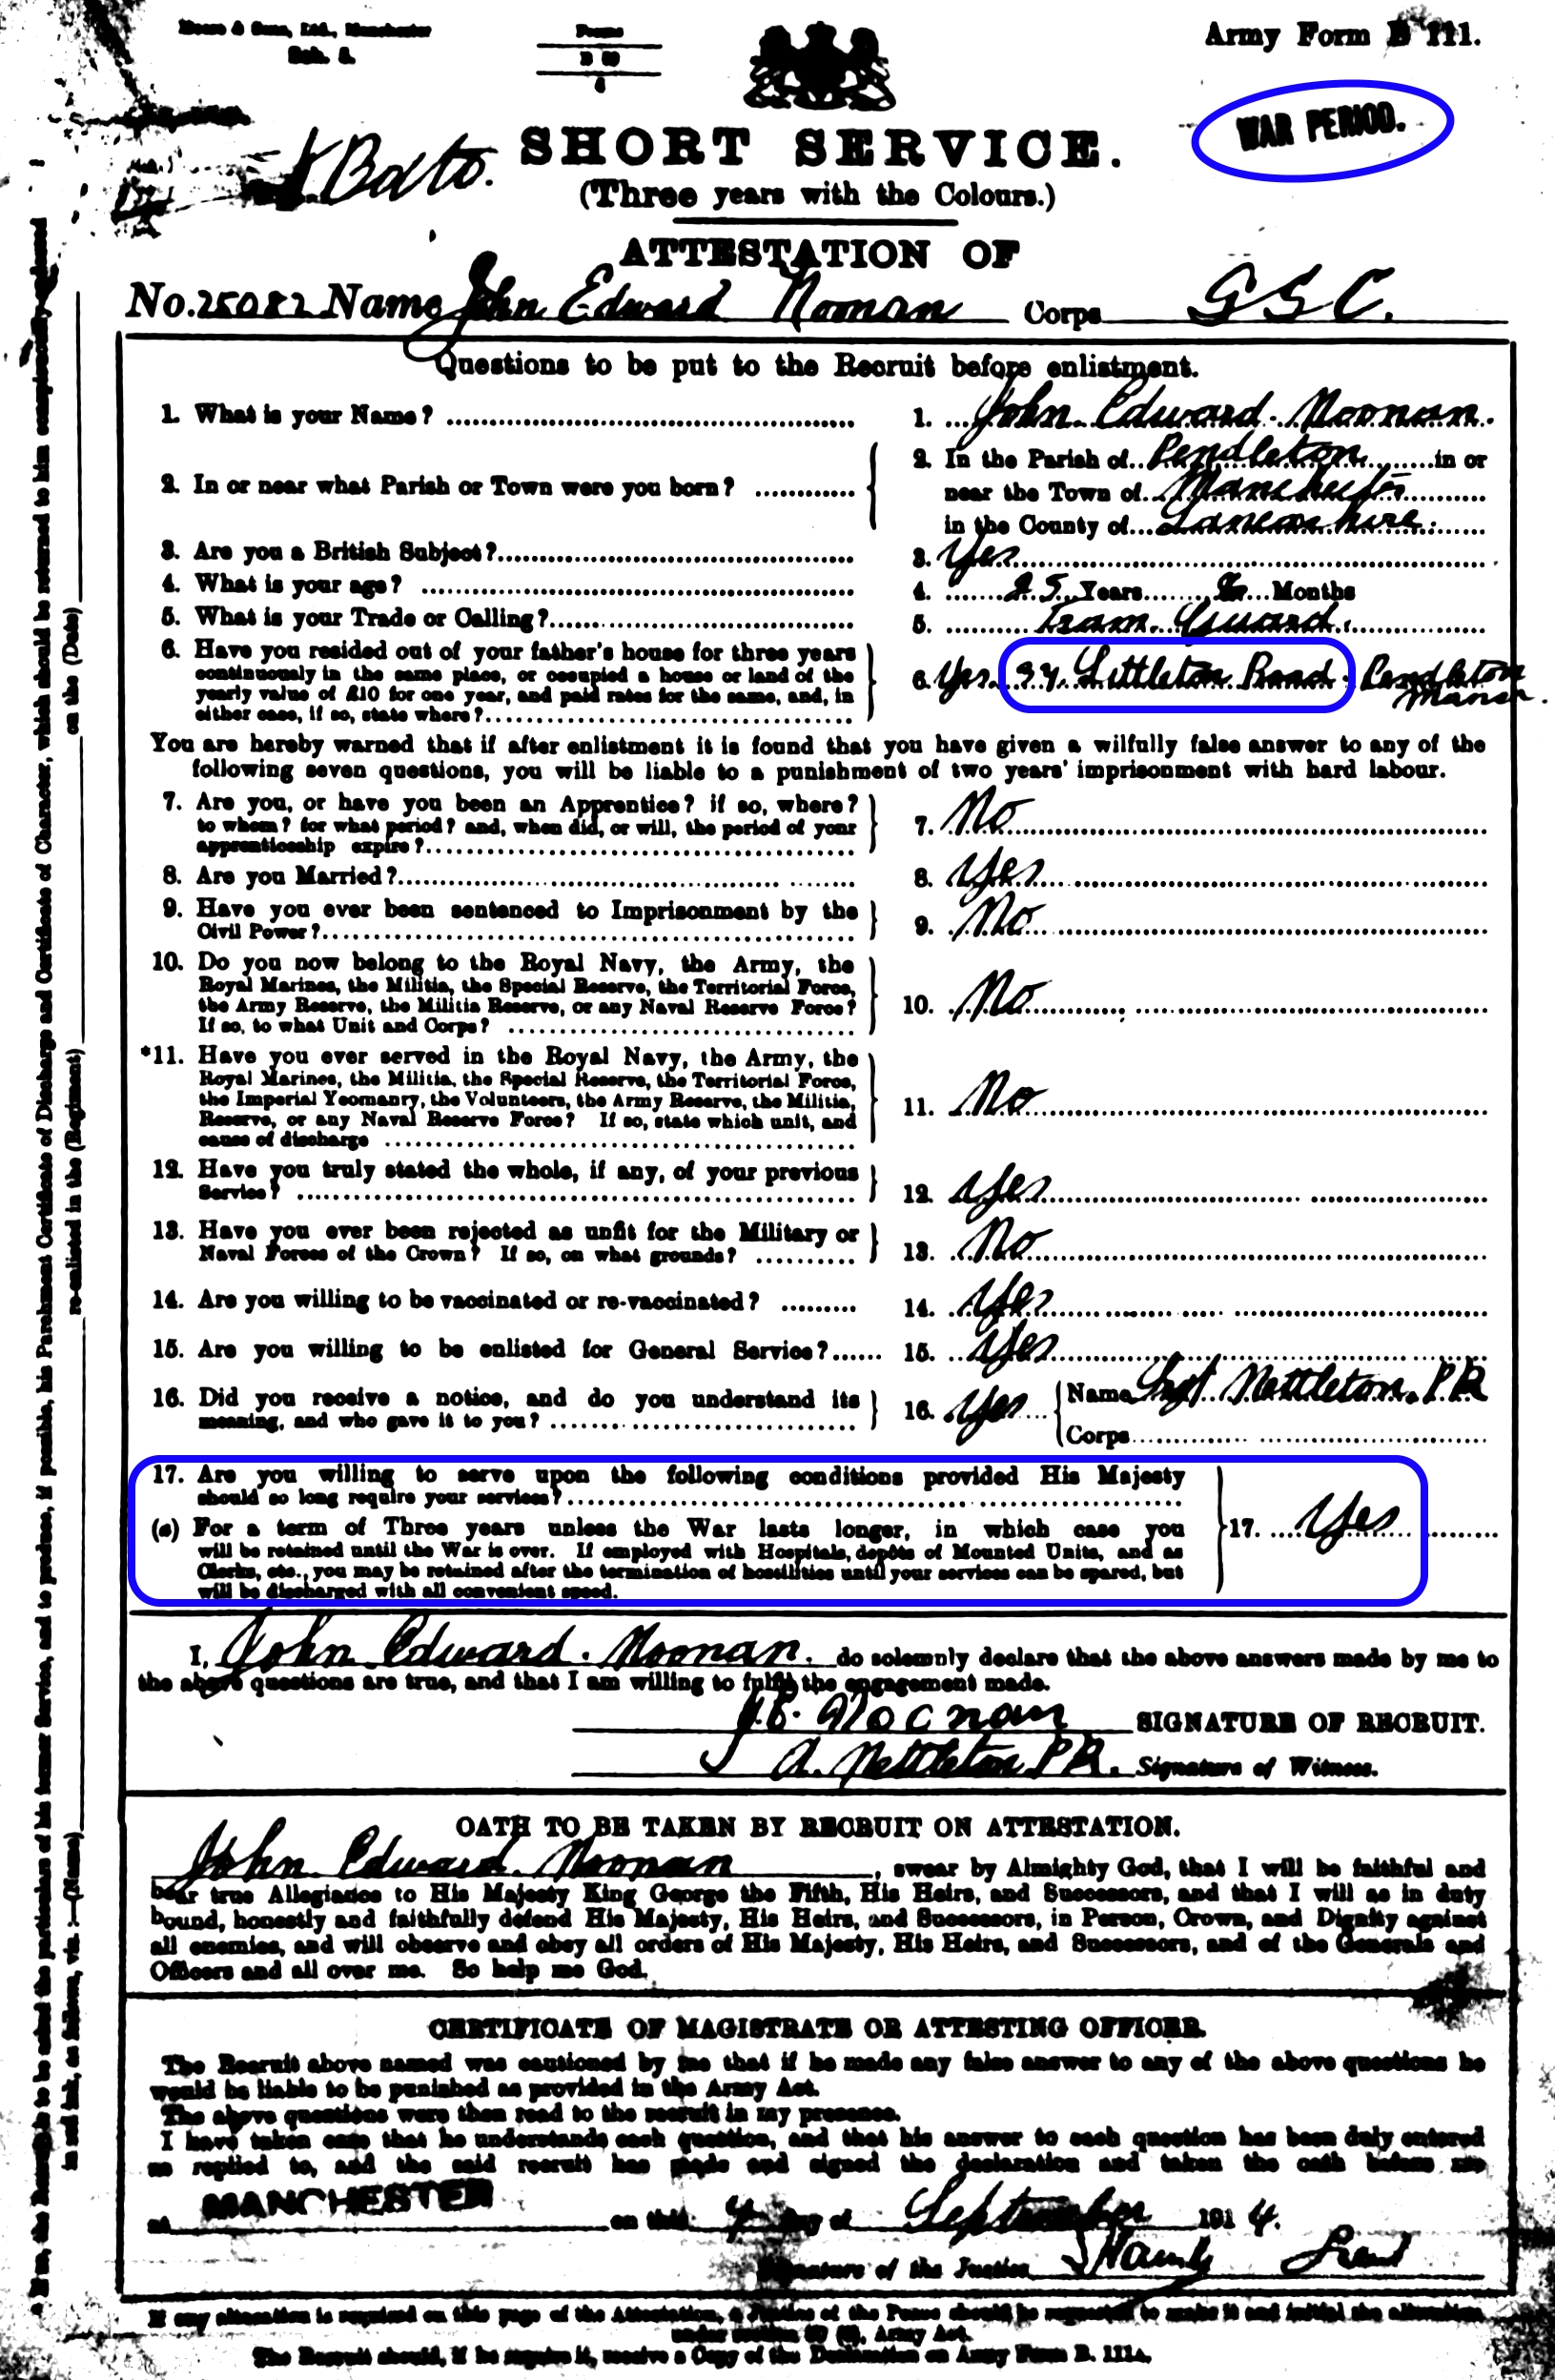 Moore & Sons, Ltd., Manchester
Army Form B 111.
WAR PERIOD.
SHORT SERVICE.
(Three years with the Colours.)
ATTESTATION OF
No. 25082 Name John Edward Noonan Corps G S C.
Questions to be put to the Recruit before enlistment.
1. What is your Name? 1. John Edward Noonan.
2. In or near what Parish or Town were you born? 2. In the Parish of Pendleton in or
near the Town of Manchester
in the County of Lancashire
3. Are you a British Subject? 3. Yes
4. What is your age? 4. 25 Years Months
5. What is your Trade or Calling? 5. Tram Guard.
6. Have you resided out of your father's house for three years
continuously in the same place, or occupied a house or land of the
yearly value of £10 for one year, and paid rates for the same, and, in
either case, if so, state where? 6. Yes. Littleton Road. Pendleton
You are hereby warned that if after enlistment it is found that you have given a wilfully false answer to any of the
following seven questions, you will be liable to a punishment of two years' imprisonment with hard labour.
7. Are you, or have you been an Apprentice? if so, where?
to whom? for what period? and, when did, or will, the period of your
apprenticeship expire? 7. No
8. Are you Married? 8. Yes
9. Have you ever been sentenced to Imprisonment by the
Civil Power? 9. No
10. Do you now belong to the Royal Navy, the Army, the
Royal Marines, the Militia, the Special Reserve, the Territorial Force,
the Army Reserve, the Militia Reserve, or any Naval Reserve Force?
If so, to what Unit and Corps? 10. No
*11. Have you ever served in the Royal Navy, the Army, the
Royal Marines, the Militia, the Special Reserve, the Territorial Force,
the Imperial Yeomanry, the Volunteers, the Army Reserve, the Militia,
Reserve, or any Naval Reserve Force? If so, state which unit, and
cause of discharge 11. No
12. Have you truly stated the whole, if any, of your previous
Service? 12. Yes
13. Have you ever been rejected as unfit for the Military or
Naval Forces of the Crown? If so, on what grounds? 13. No
14. Are you willing to be vaccinated or re-vaccinated? 14. Yes
15. Are you willing to be enlisted for General Service? 15. Yes
16. Did you receive a notice, and do you understand its
meaning, and who gave it to you? 16. Yes Name Sgt Nettleton. P.R
Corps
17. Are you willing to serve upon the following conditions provided His Majesty
should so long require your services?
(a) For a term of Three years unless the War lasts longer, in which case you
will be retained until the War is over. If employed with Hospitals, depôts of Mounted Units, and as
Clerks, etc., you may be retained after the termination of hostilities until your services can be spared, but
will be discharged with all convenient speed. 17. Yes
I, John Edward Noonan. do solemnly declare that the above answers made by me to
the above questions are true, and that I am willing to fulfil the engagement made.
J.E. Noonan SIGNATURE OF RECRUIT.
A. Nettleton P.R. Signature of Witness.
OATH TO BE TAKEN BY RECRUIT ON ATTESTATION.
John Edward Noonan, swear by Almighty God, that I will be faithful and
bear true Allegiance to His Majesty King George the Fifth, His Heirs, and Successors, and that I will as in duty
bound, honestly and faithfully defend His Majesty, His Heirs, and Successors, in Person, Crown, and Dignity against
all enemies, and will observe and obey all orders of His Majesty, His Heirs, and Successors, and of the Generals and
Officers and all over me. So help me God.
CERTIFICATE OF MAGISTRATE OR ATTESTING OFFICER.
The Recruit above named was cautioned by me that if he made any false answer to any of the above questions he
would be liable to be punished as provided in the Army Act.
The above questions were then read to the recruit in my presence.
I have taken care that he understands each question, and that his answer to each question has been duly entered
as replied to, and the said recruit has made and signed the declaration and taken the oath before me
at MANCHESTER on this 4 day of September 1914.
Signature of the Justice
If any alteration is required on this page of the Attestation, a Justice of the Peace should be requested to make it and initial the alteration
under section Army Act.
The Recruit should, if he require it, receive a Copy of the Declaration on Army Form B. 111A.
* If so, the Recruit is to be asked the particulars of his former Service, and to produce, if possible, his Parchment Certificate of Discharge and Certificate of Character, which should be returned to him conspicuously endorsed
in red ink, as follows, viz. :—(Name) re-enlisted in the (Regiment) on the (Date)